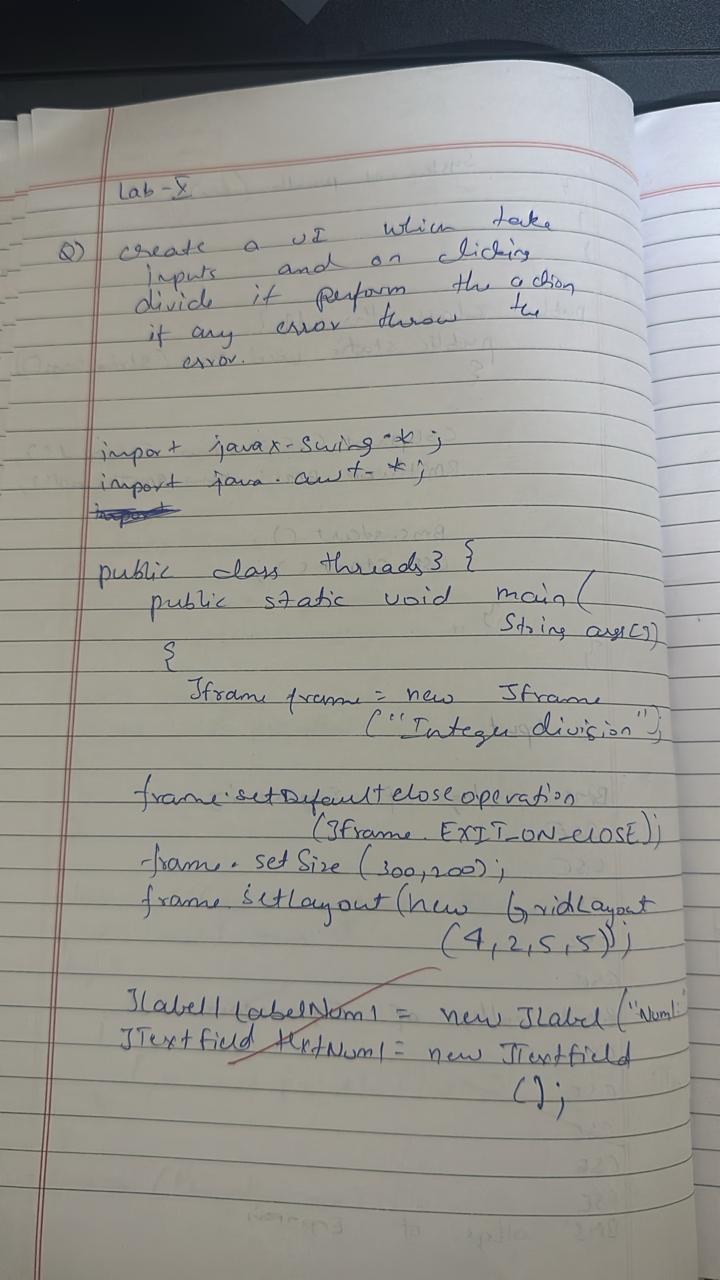 Lab - X
Q) create a UI which take
inputs and on clicking
divide it perform the action
if any error throw the
error.
import javax.swing.*;
import java.awt.*;
public class threads3 {
public static void main(
String args[])
{
Jframe frame = new Jframe
("Integer division");
frame.setDefaultcloseoperation
(Jframe.EXIT_ON_CLOSE);
frame.setSize (300,200);
frame.setLayout(new GridLayout
(4,2,5,5));
Jlabel labelNum1 = new JLabel("Num1:"
JTextfield txtNum1 = new JTextfield
();